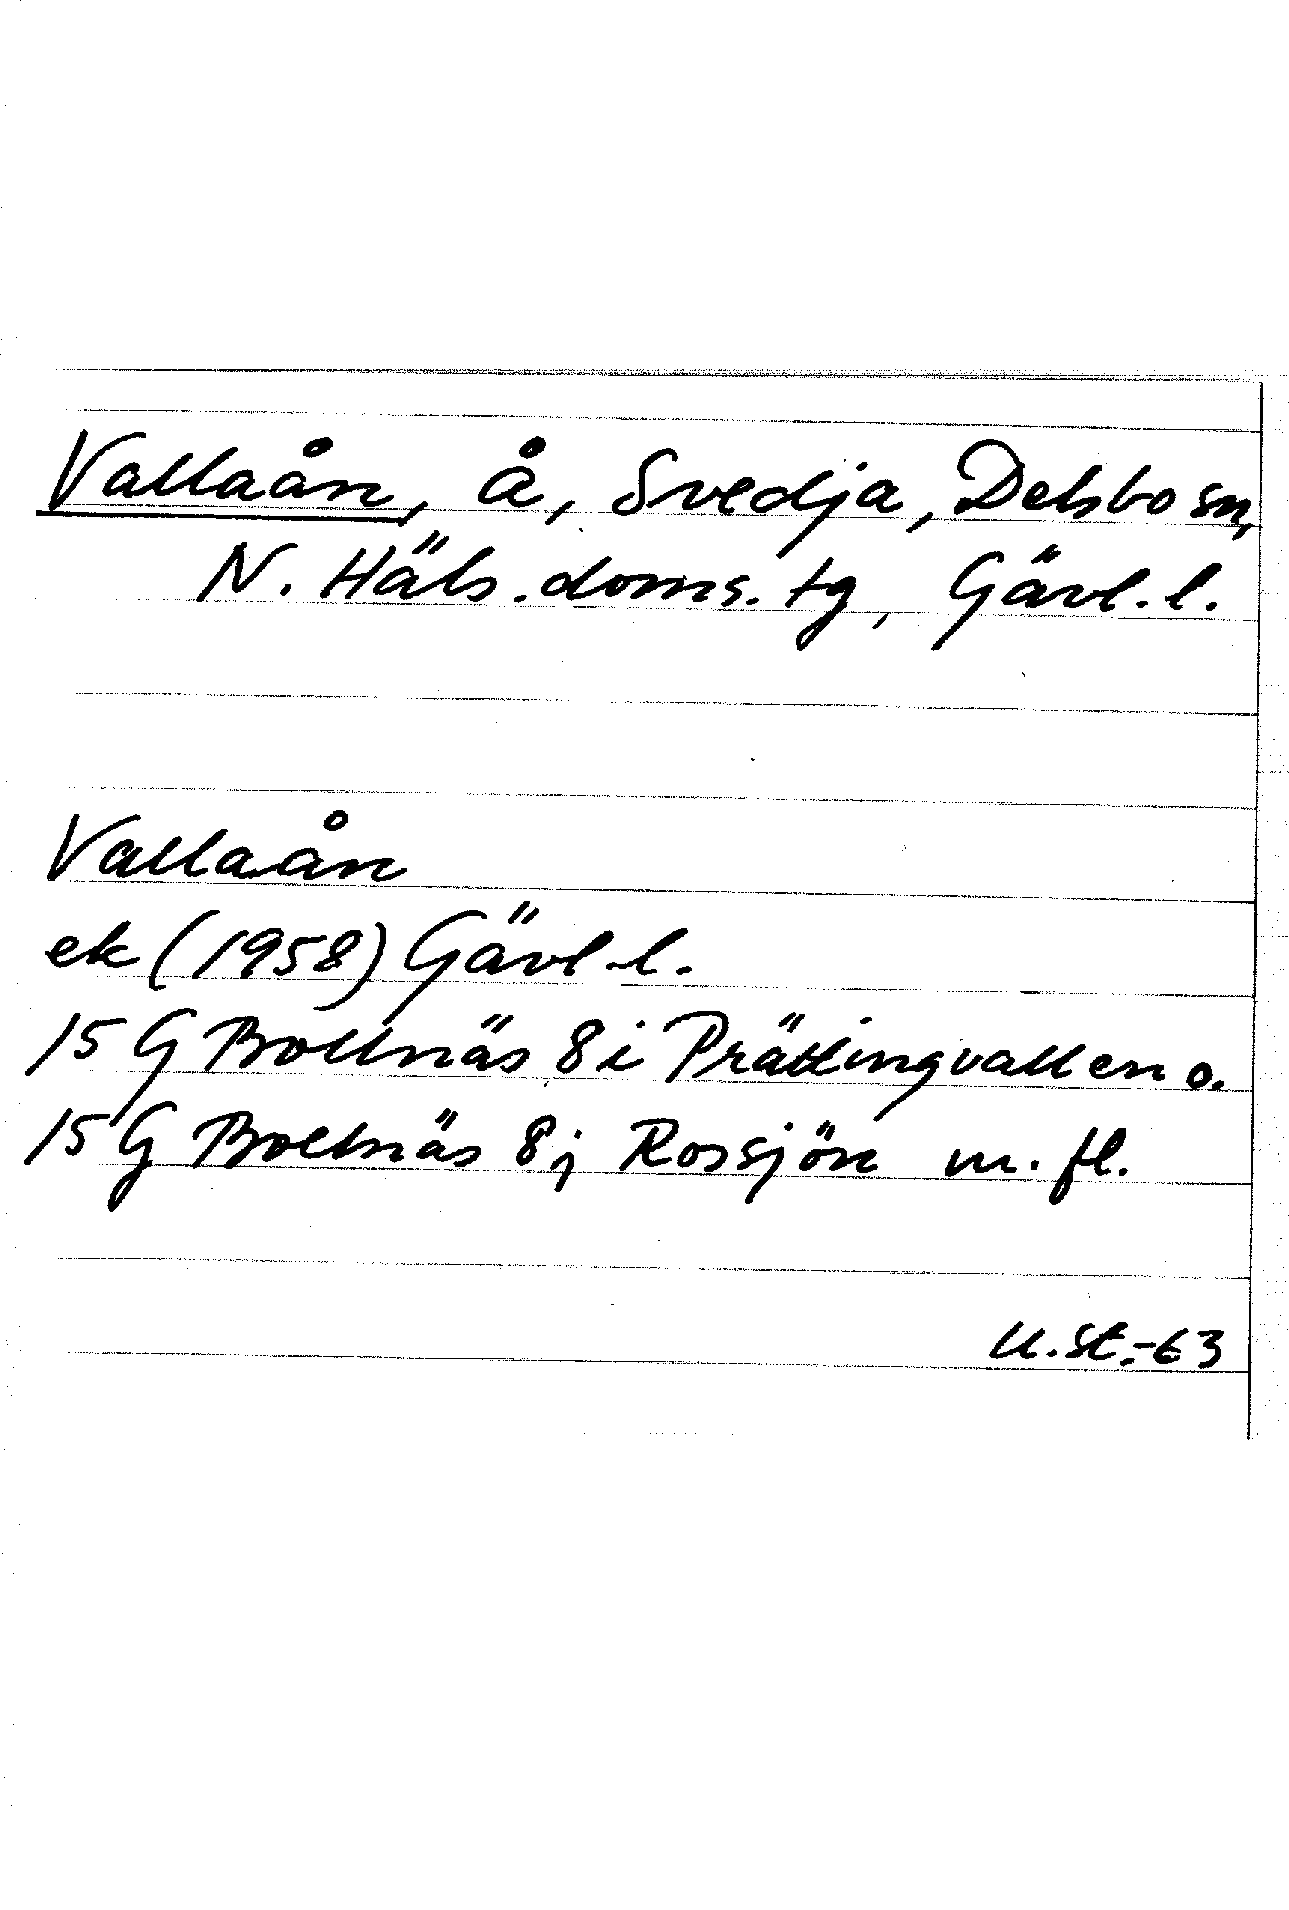 Vallaån, å, Svedja, Delsbo sn,
N. Häls. doms. tg, Gävl. l.
Vallaån
ek (1958) Gävl. l.
15 G Bollnäs 8 i Prästingvallen o.
15 G Bollnäs 8 j Rossjön m. fl.
U. St. -63